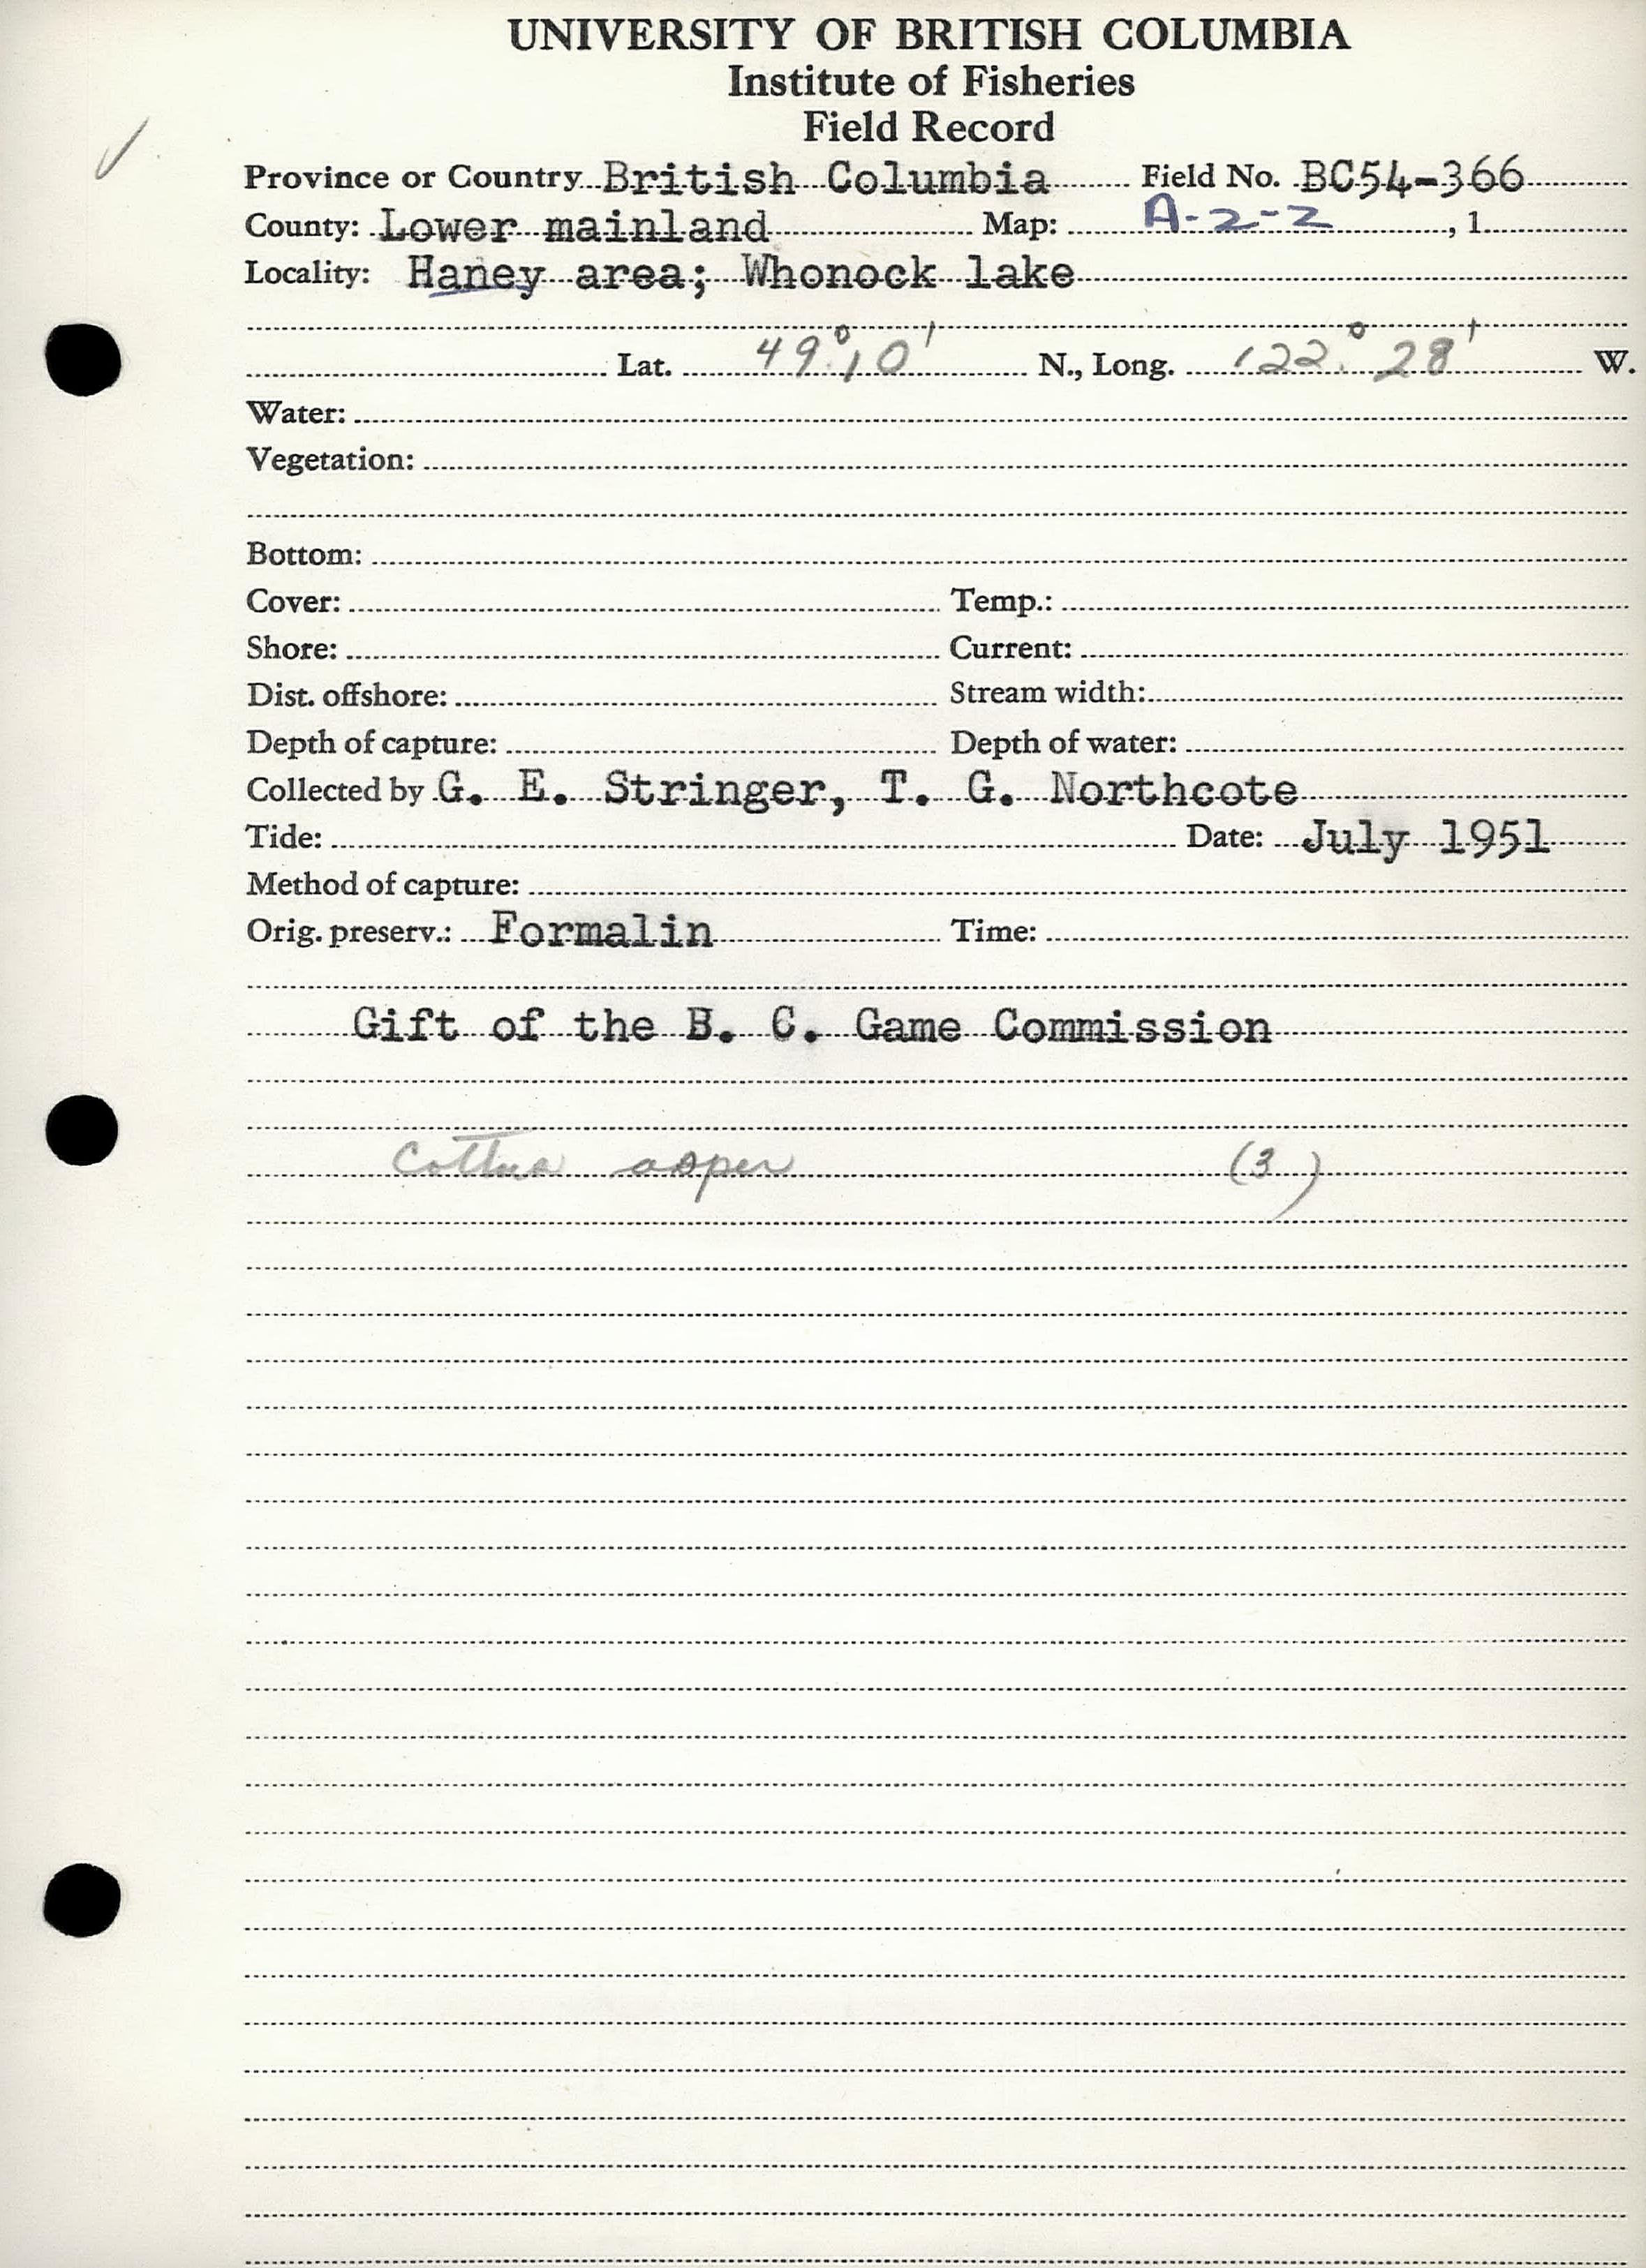 UNIVERSITY OF BRITISH COLUMBIA
Institute of Fisheries
Field Record
Province or Country British Columbia Field No. BC54-366
County: Lower mainland Map: A-2-2, 1
Locality: Haney area; Whonock lake
Lat. 49° 10' N., Long. 122° 28' W.
Water:
Vegetation:
Bottom:
Cover: Temp.:
Shore: Current:
Dist. offshore: Stream width:
Depth of capture: Depth of water:
Collected by G. E. Stringer, T. G. Northcote
Tide: Date: July 1951
Method of capture:
Orig. preserv.: Formalin Time:
Gift of the B. C. Game Commission
Cottus asper (3)